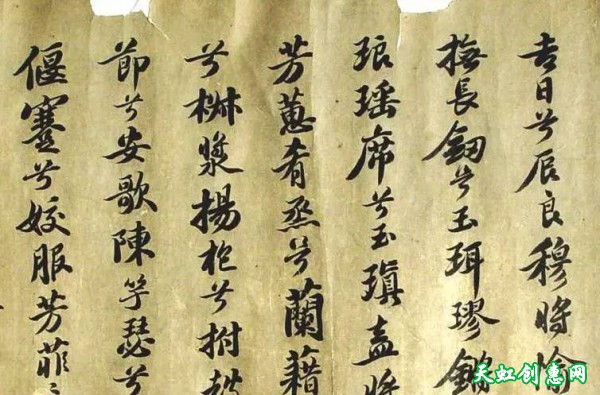 吉日兮辰良穆将愉
撫長劒兮玉珥璆鏘
琅瑶席兮玉瑱盍将
芳蕙肴烝兮蘭藉
兮椒漿揚枹兮拊鼓
節兮安歌陳竽瑟兮
偃蹇兮姣服芳菲〻
天虹创惠网